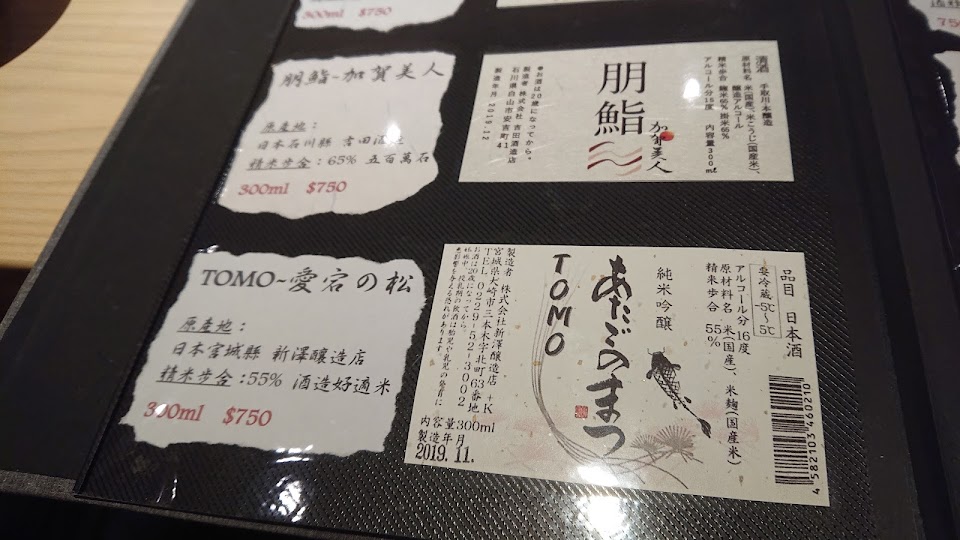 300ml $750
朋鮨-加賀美人
原產地：
日本石川縣 吉田酒造
精米步合：65% 五百萬石
300ml $750
清酒 手取川本醸造
原材料名 米(国産)、米こうじ(国産米)、
醸造アルコール
精米歩合 麹米65% 掛米65%
アルコール分16度 内容量300ml
朋鮨
加賀美人
●お酒は20歳になってから。
製造者 株式会社 吉田酒造店
石川県白山市安吉町41
製造年月 2019.12
TOMO~愛宕の松
原產地：
日本宮城縣 新澤釀造店
精米步合：55% 酒造好適米
300ml $750
品目 日本酒
要冷蔵 -5℃~5℃
アルコール分16度
原材料名 米(国産)、米麹(国産米)
精米歩合 55%
純米吟醸
あたごのまつ
TOMO
製造者 株式会社新澤醸造店 +K
宮城県大崎市三本木字北町63番地
TEL 0229-52-3002
お酒は20歳になってから。
内容量300ml
製造年月
2019.11.
4582103460210